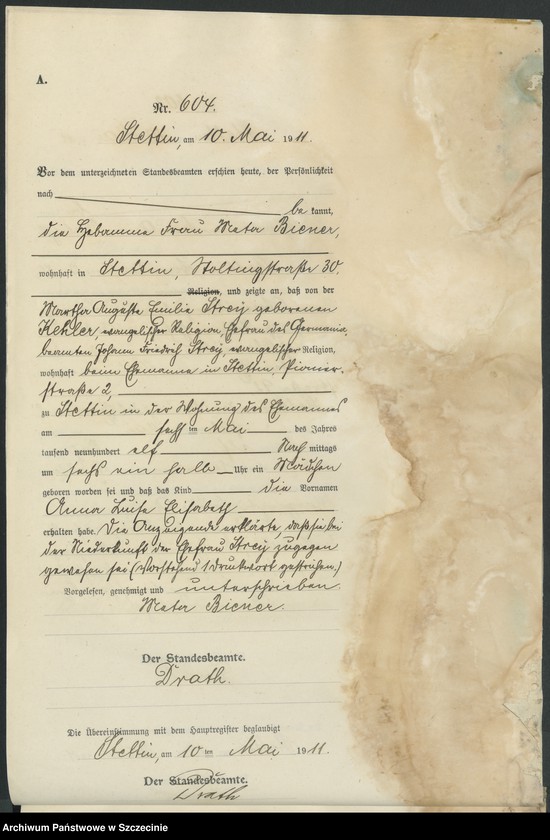 A.
Nr. 604.
Stettin, am 10. Mai 1911.
Vor dem unterzeichneten Standesbeamten erschien heute, der Persönlichkeit
nach
bekannt,
die Hebamme Frau Meta Biener,
wohnhaft in Stettin, Stoltingstraße 30.
Religion, und zeigte an, daß von der
Martha Auguste Emilie geborenen
Kehler, evangelischer Religion, Ehefrau des
beamten Johann Friedrich evangelischer Religion,
wohnhaft beim Ehemanne in Stettin, Pionier-
straße 2,
zu Stettin in der Wohnung des Ehemannes
am sechsten Mai des Jahres
tausend neunhundert elf Nachmittags
um sechs ein halb Uhr ein Mädchen
geboren worden sei und daß das Kind die Vornamen
Anna Luise Elisabeth
erhalten habe. Die Anzeigende erklärte, daß sie bei
der Niederkunft der Ehefrau zugegen
gewesen sei (Vorstehend 1 Druckwort gestrichen.)
Vorgelesen, genehmigt und unterschrieben.
Meta Biener.
Der Standesbeamte.
Drath.
Die Übereinstimmung mit dem Hauptregister beglaubigt
Stettin, am 10ten Mai 1911.
Der Standesbeamte.
Drath
Archiwum Państwowe w Szczecinie